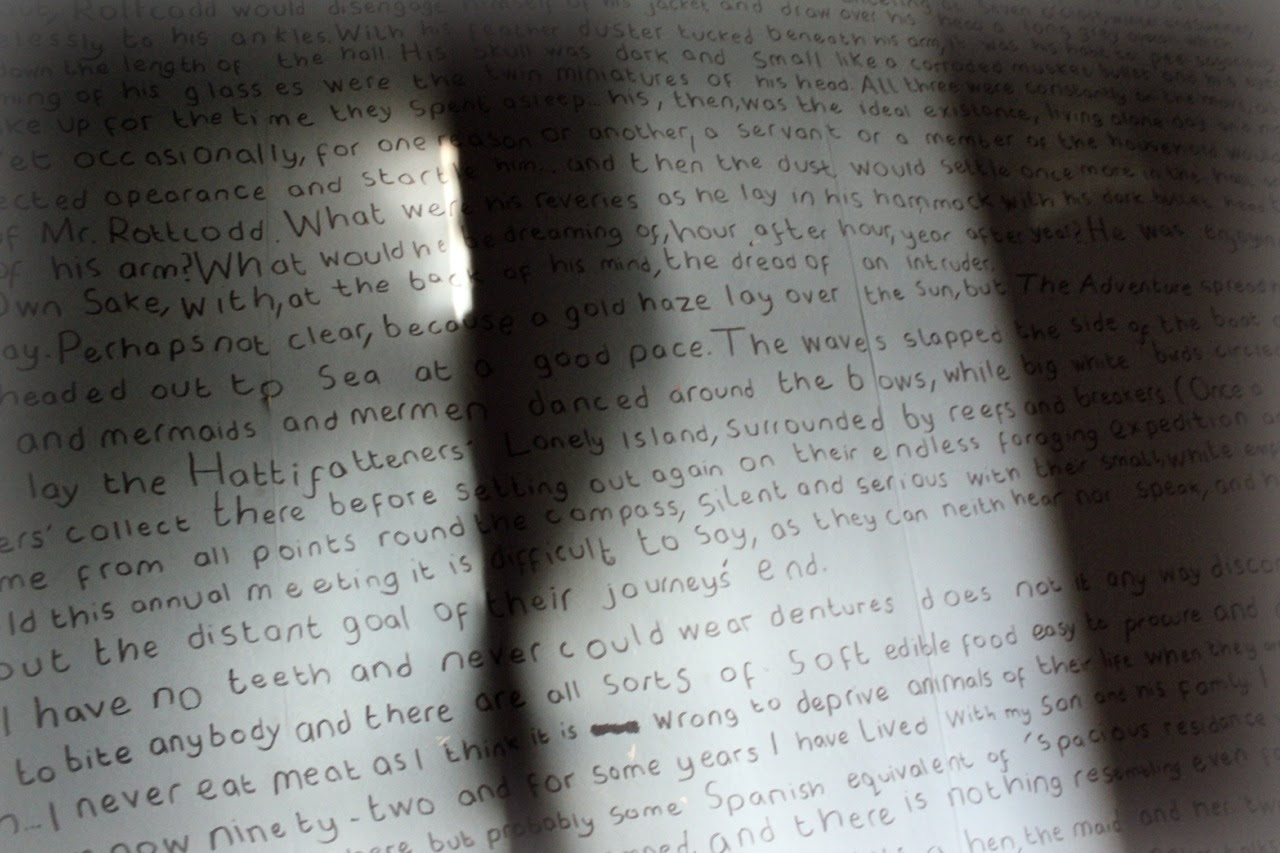 Rottcodd would disengage himself of his jacket, and draw over his head a long grey apron which
lessly to his ankles. With his feather duster tucked beneath his arm, it was his habit to peer
down the length of the hall. His skull was dark and small like a corroded musket bullet and his eyes
ming of his glasses were the twin miniatures of his head. All three were constantly on the move,
ke up for the time they spent asleep... his, then, was the ideal existence, living alone day and
et occasionally, for one reason or another, a servant or a member of the household would
ected apearance and startle him... and then the dust would settle once more in the
of Mr. Rottcodd. What were his reveries as he lay in his hammock with his dark bullet head
of his arm? What would he be dreaming of, hour after hour, year after year? He was
own Sake, with, at the back of his mind, the dread of an intruder.
ay. Perhaps not clear, because a gold haze lay over the sun, but The Adventure spread
headed out to Sea at a good pace. The waves slapped the side of the boat
and mermaids and mermen danced around the bows, while big white birds circled
lay the Hattifatteners' Lonely Island, surrounded by reefs and breakers. (Once a
ers' collect there before setting out again on their endless foraging expedition
me from all points round the compass, silent and serious with their small, white
ld this annual meeting it is difficult to say, as they can neith hear nor speak, and
out the distant goal of their journey's end.
I have no teeth and never could wear dentures does not it any way
to bite anybody and there are all sorts of soft edible food easy to procure and
n... I never eat meat as I think it is wrong to deprive animals of ther life when they
now ninety-two and for some years I have Lived with my son and his family I
here but probably some Spanish equivalent of 'spacious residance
and there is nothing resembling even
hen, the maid and her